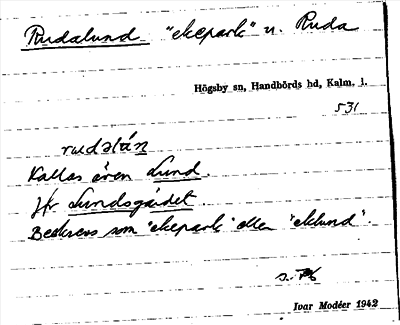 Rudalund "ekepark" u. Ruda
Högsby sn, Handbörds hd, Kalm. l.
531
rudəlán
Kallas även Lund.
Jfr Lundsgärdet.
Beskrevs som "ekepark" eller "eklund".
Ivar Modéer 1942